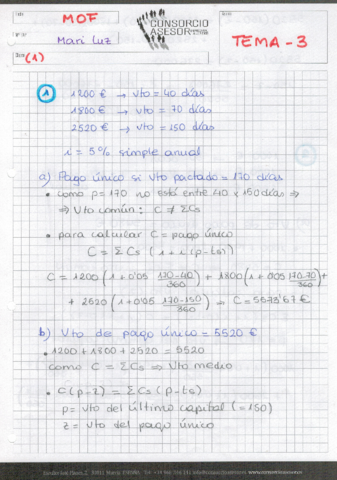 MOF
CONSORCIO
ASESOR
Mari Luz
TEMA-3
(1)
1 1200 € → vto = 40 días
1800 € → vto = 70 días
2520 € → vto = 150 días
i = 5% simple anual
a) Pago único si vto pactado = 170 días
• como p=170 no está entre 40 y 150 días ⇒
⇒ Vto común: C ≠ ΣCs
• para calcular C = pago único
C = ΣCs (1 + i (p-ts)
C = 1200 (1 + 0'05 170-40/360) + 1800 (1 + 0'05 170-70/360) +
+ 2520 (1 + 0'05 170-150/360) ⇒ C = 5573'67 €
b) Vto de pago único = 5520 €
• 1200 + 1800 + 2520 = 5520
como C = ΣCs ⇒ Vto medio
• C(p-z) = ΣCs (p-ts)
p = vto del último capital (= 150)
z = vto del pago único